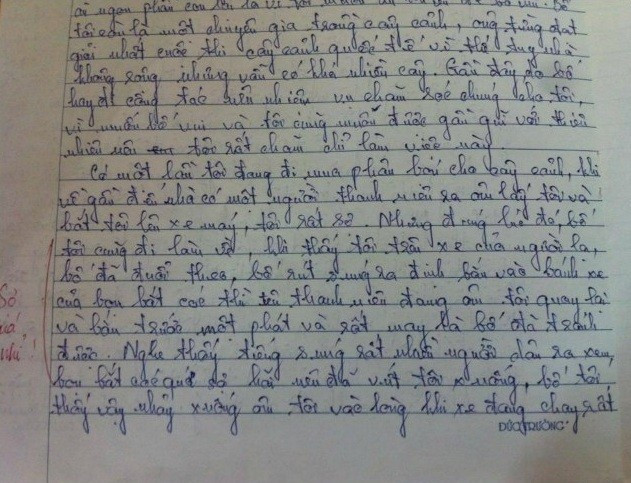 tôi còn là một chuyên gia trong cây cảnh, ông từng đạt
giải nhất cuộc thi cây cảnh quốc tế vì thế tuy nhà
không rộng nhưng vẫn có khá nhiều cây. Gần đây do bố
hay đi công tác nên nhiệm vụ chăm sóc chúng cho tôi,
vì muốn bố vui và tôi cũng muốn được gần gũi với thiên
nhiên nên tôi rất chăm chỉ làm việc này.
Có một lần tôi đang đi mua phân bón cho cây cảnh, khi
về gần đến nhà có một người thanh niên ra ôm lấy tôi và
bắt tôi lên xe máy, tôi rất sợ. Nhưng đúng lúc đó, bố
tôi cũng đi làm về, khi thấy tôi trên xe của người lạ,
bố đã đuổi theo, bố rút súng ra định bắn vào bánh xe
của bọn bắt cóc thì tên thanh niên đang ôm tôi quay lại
và bắn trước một phát và rất may là bố đã tránh
được. Nghe thấy tiếng súng rất nhiều người dân ra xem,
bọn bắt cóc quá sợ hãi nên đã vứt tôi xuống, bố tôi
thấy vậy nhảy xuống ôm tôi vào lòng khi xe đang chạy rất
Sợ
quá
nhỉ!
ĐỨC TRƯỜNG